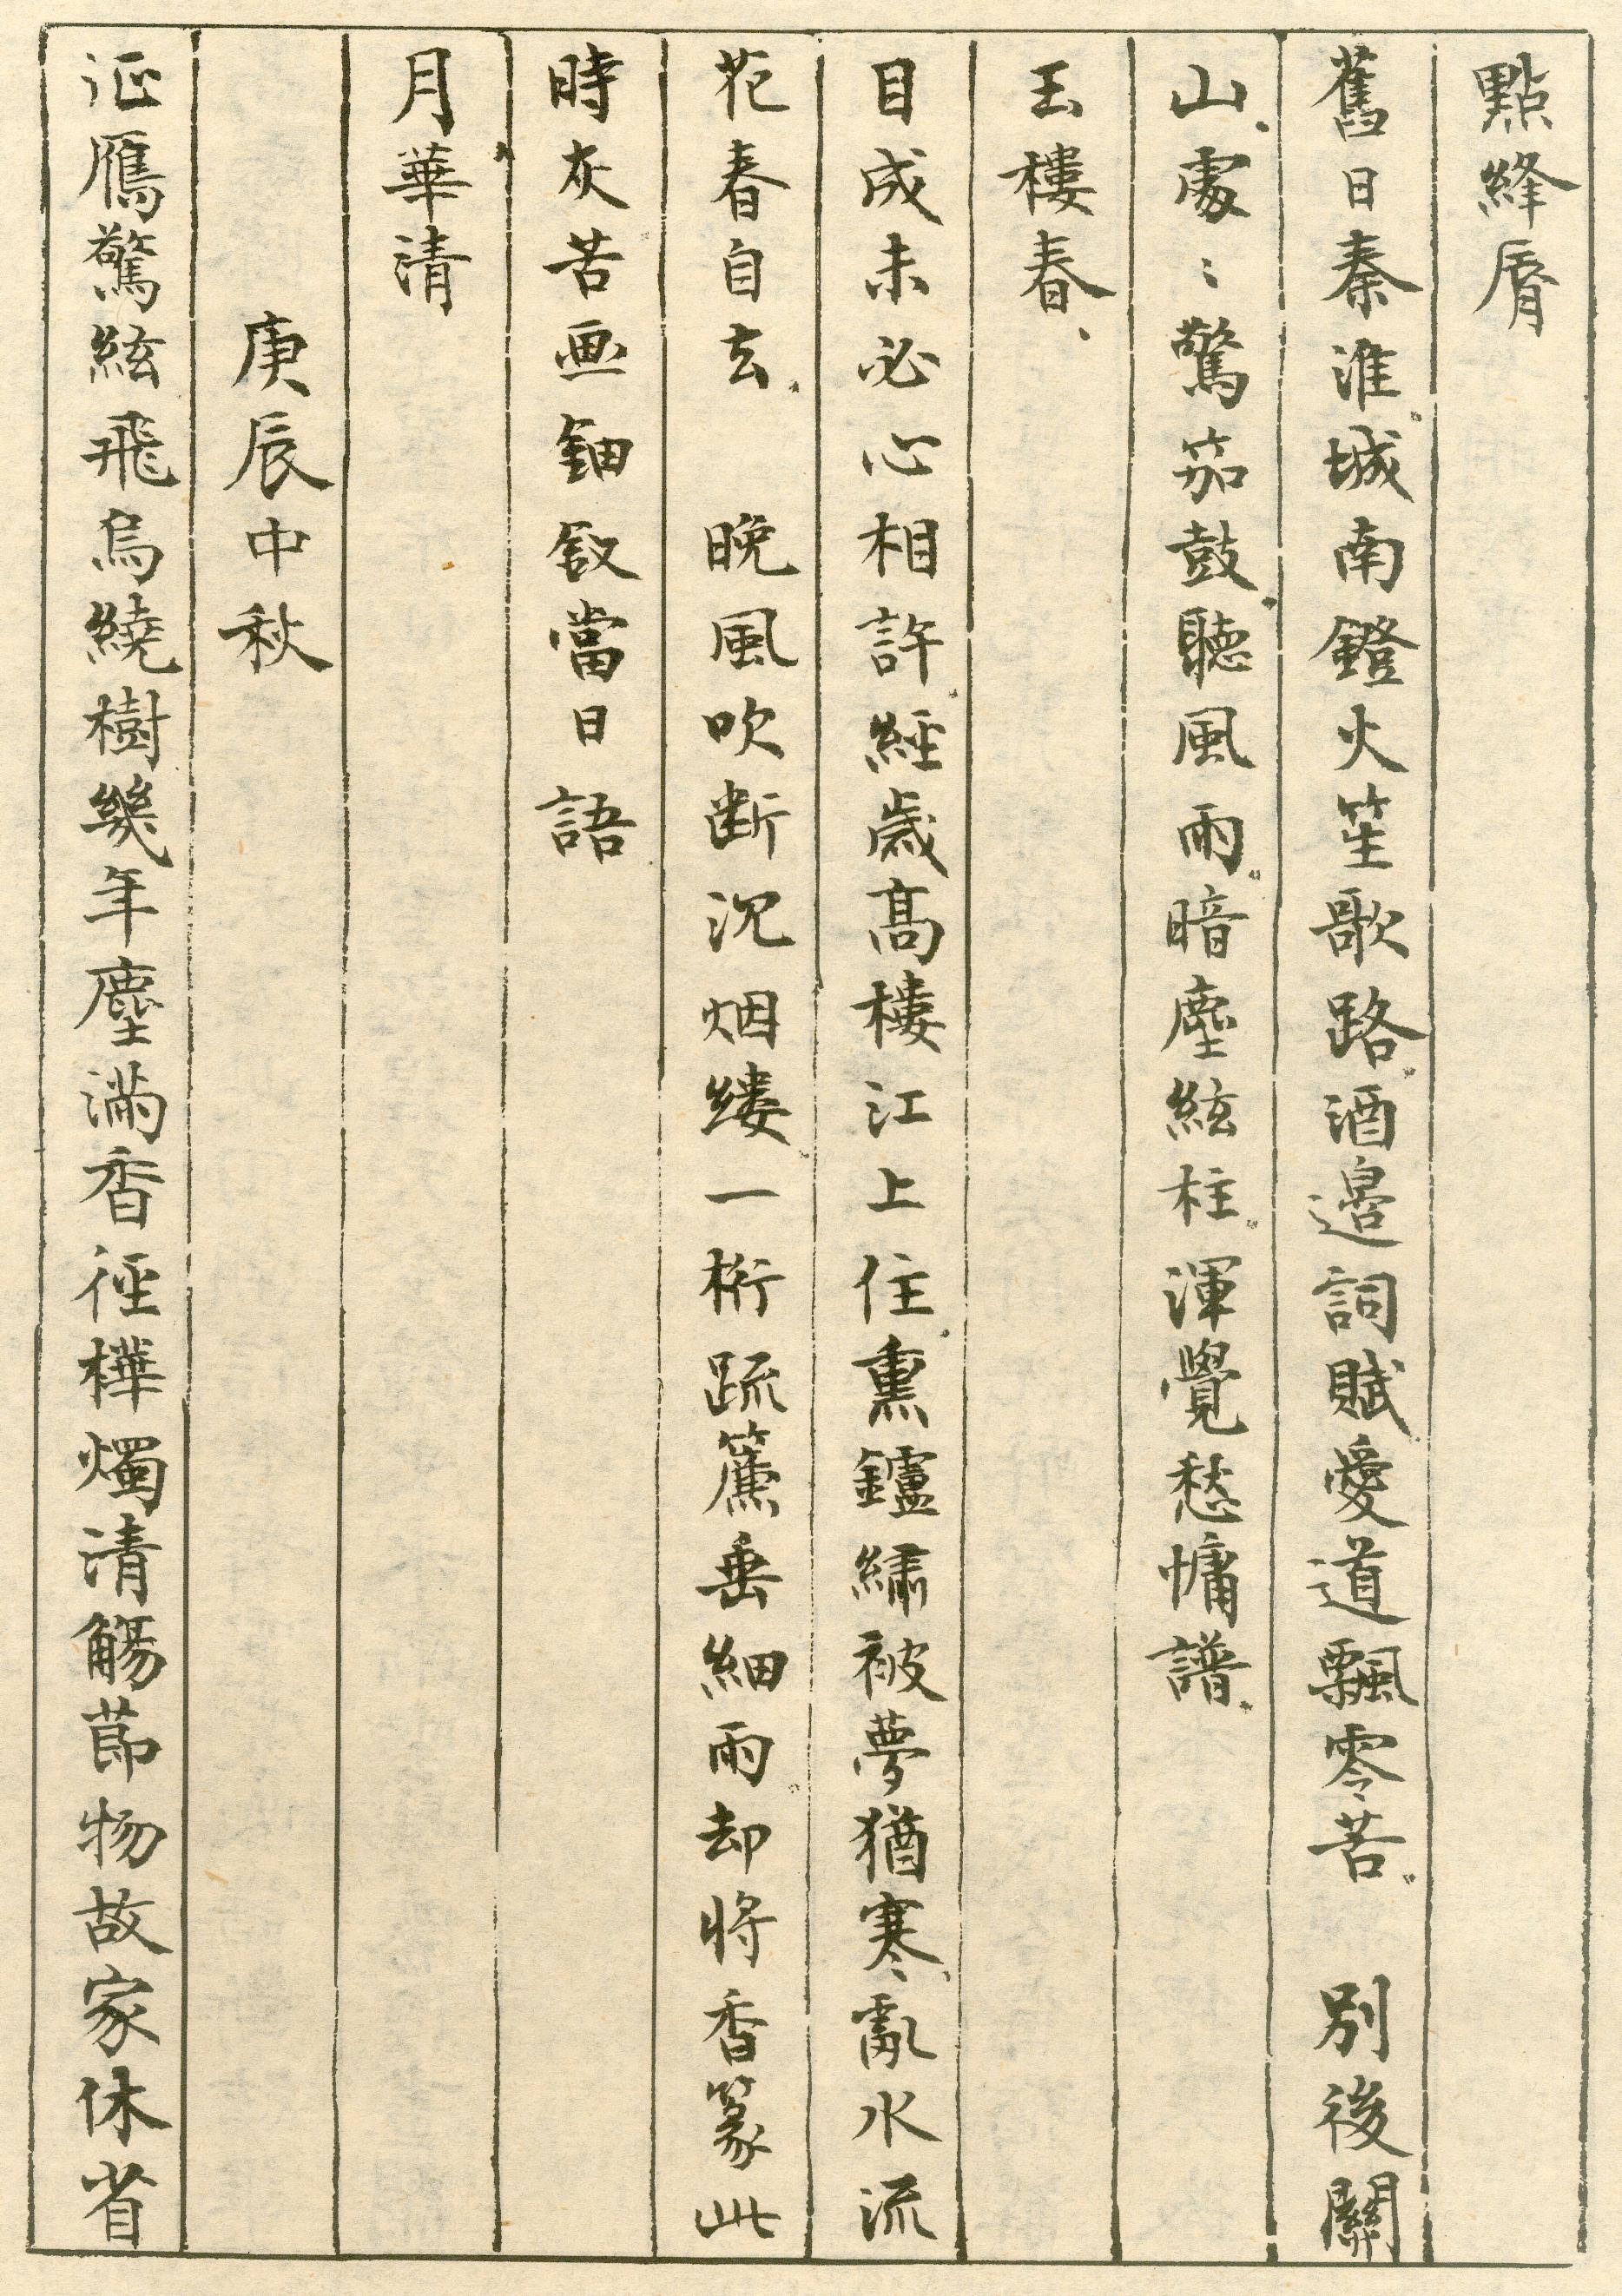 點絳脣
舊日秦淮城南鐙火笙歌路酒邊詞賦愛道飄零苦　別後關
山處〻驚笳鼓聽風雨暗塵絃柱渾覺愁慵譜
玉樓春
目成未必心相許經歲高樓江上住熏鑪繡被夢猶寒亂水流
花春自去　晚風吹斷沉烟縷一桁疏簾垂細雨却將香篆此
時灰苦画鈿釵當日語
月華清
庚辰中秋
征雁驚絃飛烏繞樹幾年塵滿香徑樺燭清觴節物故家休省